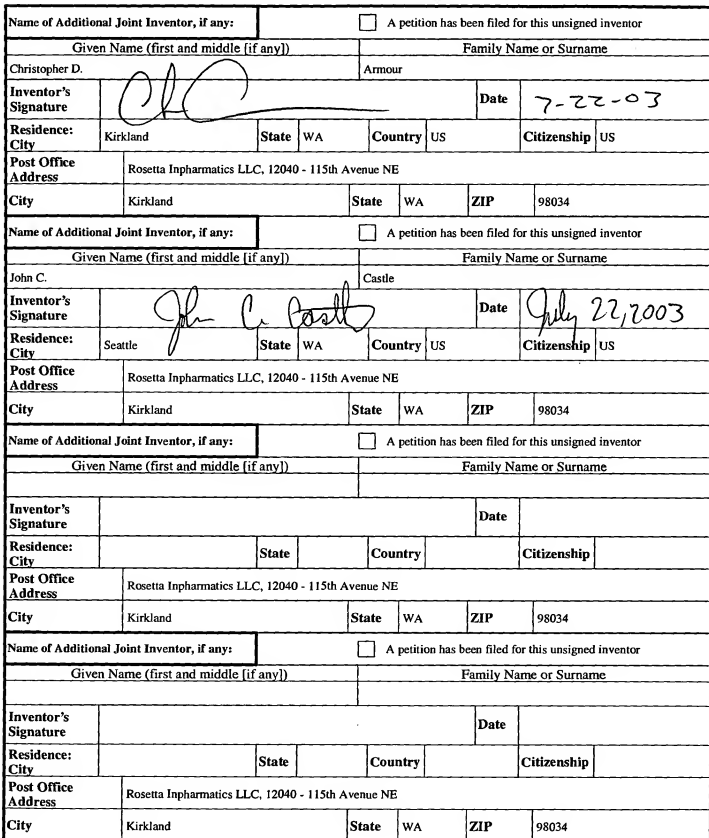 Name of Additional Joint Inventor, if any: A petition has been filed for this unsigned inventor
Given Name (first and middle [if any]) Family Name or Surname
Christopher D. Armour
Inventor's Signature Date 7-22-03
Residence: City Kirkland State WA Country US Citizenship US
Post Office Address Rosetta Inpharmatics LLC, 12040 - 115th Avenue NE
City Kirkland State WA ZIP 98034
Name of Additional Joint Inventor, if any: A petition has been filed for this unsigned inventor
Given Name (first and middle [if any]) Family Name or Surname
John C. Castle
Inventor's Signature John C. Castle Date July 22, 2003
Residence: City Seattle State WA Country US Citizenship US
Post Office Address Rosetta Inpharmatics LLC, 12040 - 115th Avenue NE
City Kirkland State WA ZIP 98034
Name of Additional Joint Inventor, if any: A petition has been filed for this unsigned inventor
Given Name (first and middle [if any]) Family Name or Surname
Inventor's Signature Date
Residence: City State Country Citizenship
Post Office Address Rosetta Inpharmatics LLC, 12040 - 115th Avenue NE
City Kirkland State WA ZIP 98034
Name of Additional Joint Inventor, if any: A petition has been filed for this unsigned inventor
Given Name (first and middle [if any]) Family Name or Surname
Inventor's Signature Date
Residence: City State Country Citizenship
Post Office Address Rosetta Inpharmatics LLC, 12040 - 115th Avenue NE
City Kirkland State WA ZIP 98034